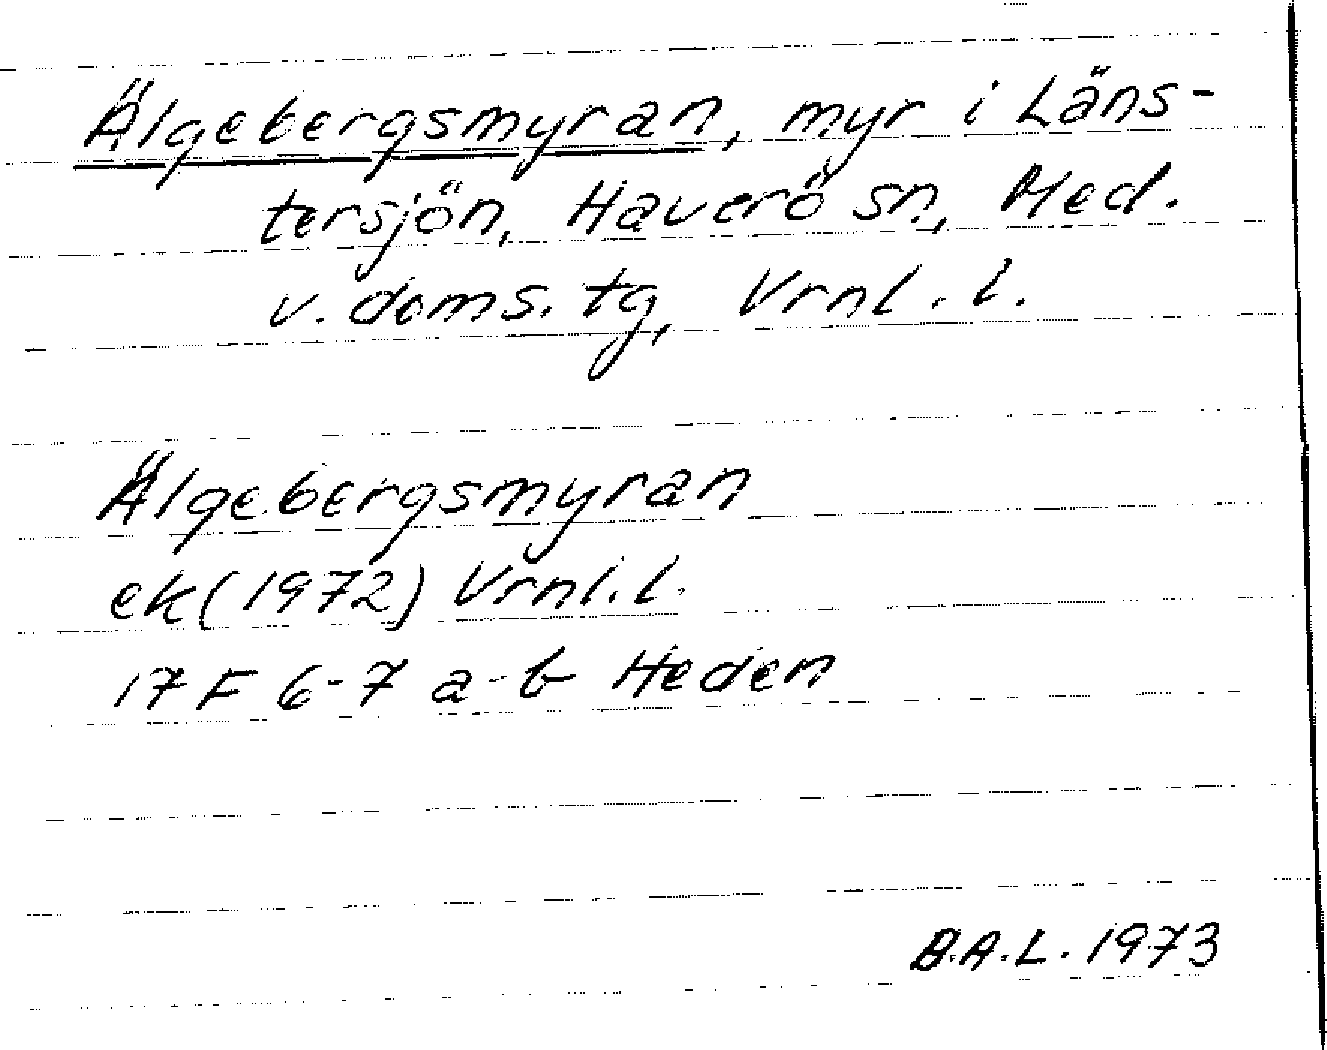 Älgebergsmyran, myr i Läns-
tersjön, Haverö sn, Med.
v. doms. tg, Vrnl. l.
Älgebergsmyran
ek (1972) Vrnl. l.
17 F 6-7 a-b Heden
B.A.L. 1973